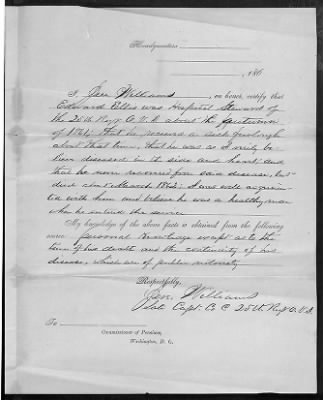 Headquarters
, 186
I, Jen Williams, on honor, certify that
Edward Ellis was Hospital Steward of
the 25th Regt O.V.I. about the
of 1861; that he received a sick furlough
about that time, that he was as I verily be
lieve diseased in its side and heart and
that he never recovered from said disease, but
died about March 1862; I was well acquain
ted with him and believe he was a healthy man
when he entered the service
My knowledge of the above facts is obtained from the following
source: personal knowledge except as to the
time of his death and the continuity of his
disease, which are of public notoriety
Respectfully,
Jen. Williams
late Capt. Co C 25th Regt O.V.I.
To
Commissioner of Pensions,
Washington, D. C.